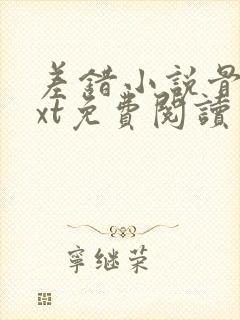 差錯小說骨
xt免費閱讀
寧继荣